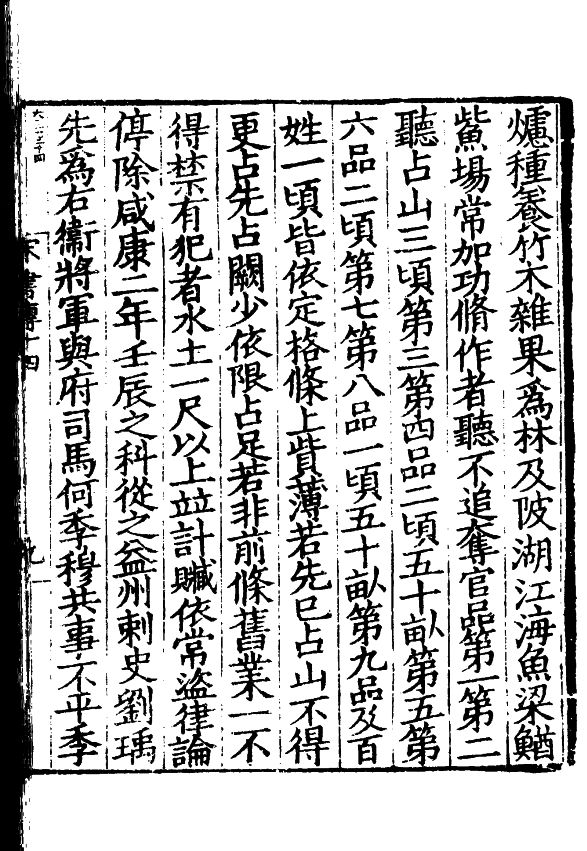 爈種養竹木雜果爲林及陂湖江海魚梁鰌
鮆場常加功脩作者聽不追奪官品第一第二
聽占山三頃第三第四品二頃五十畝第五第
六品二頃第七第八品一頃五十畝第九品及百
姓一頃皆依定格條上貲薄若先巳占山不得
更占先占闕少依限占足若非前條舊業一不
得禁有犯者水土一尺以上竝計贓依常盜律論
停除咸康二年壬辰之科從之益州刺史劉瑀
先爲右衞將軍與府司馬何季穆共事不平季
宋書傳十四
九